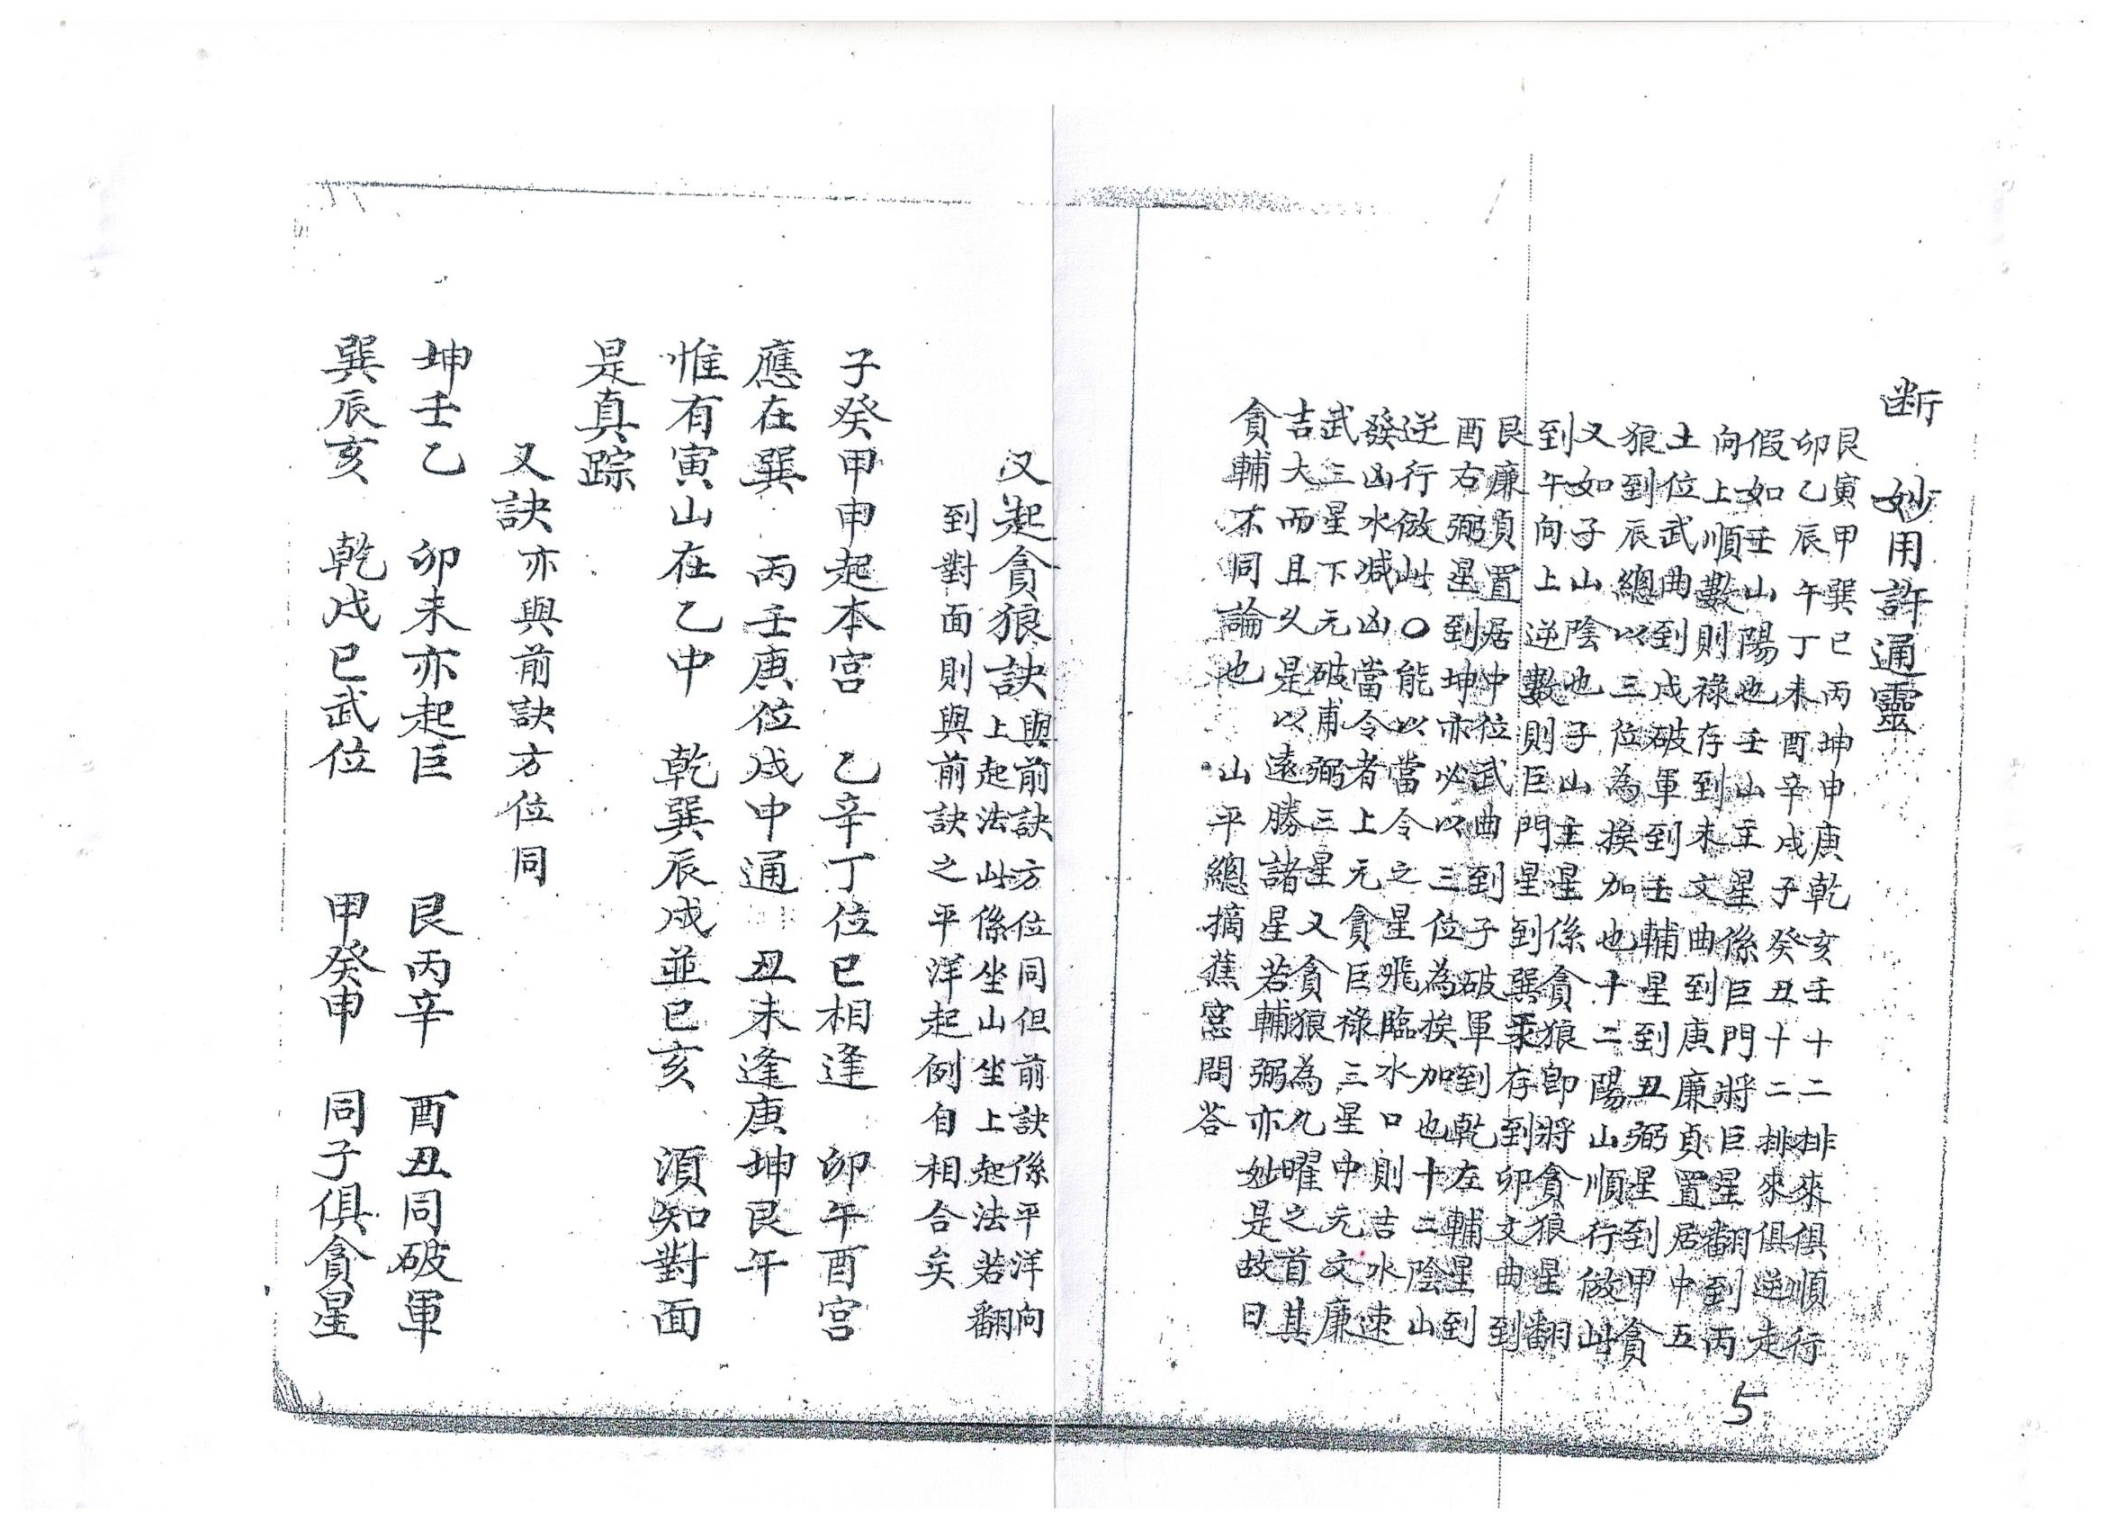 断　妙用許通靈
艮寅甲巽巳丙坤申庚乾亥壬十二排來俱順行
卯乙辰午丁未酉辛戌子癸丑十二排來俱逆走
假如壬山陽也壬山主星係巨門將巨星翻到丙
向上順數則祿存到未文曲到庚廉貞置居中五
土位武曲到戌破軍到壬輔星到丑弼星到甲貪
狼到辰總以三位為挨加也十二陽山順行倣此
又如子山陰也子山主星係貪狼即將貪狼星翻
到午向上逆數則巨門星到巽祿存到卯文曲到
艮廉貞置居中位武曲到子破軍到乾左輔星到
酉右弼星到坤亦以三位為挨加也十二陰山
逆行倣此〇能以當令之星飛臨水口則吉水速
發凶水減凶當令者上元貪巨祿三星中元文廉
武三星下元破甫弼三星又貪狼為九曜之首其
吉大而且久是以遠勝諸星若輔弼亦妙是故曰
貪輔不同論也　山平總摘蕉窓問答
又起貪狼訣與前訣方位同但前訣係平洋向
上起法此係坐山坐上起法若翻
到對面則與前訣之平洋起例自相合矣
子癸甲申起本宮　乙辛丁位巳相逢　卯午酉宮
應在巽　丙壬庚位戌中通　丑未逢庚坤艮午
惟有寅山在乙中　乾巽辰戌並巳亥　須知對面
是真踪
又訣亦與前訣方位同
坤壬乙　卯未亦起巨　艮丙辛　酉丑同破軍
巽辰亥　乾戌巳武位　甲癸申　同子俱貪星
5